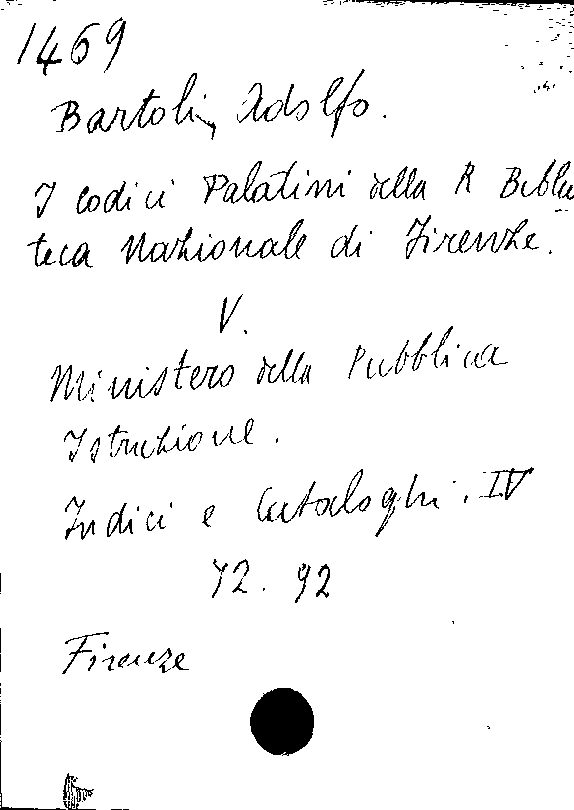 1469
Bartoli, Adolfo.
I codici Palatini della R Biblio
teca Nazionale di Firenze.
V.
Ministero della Pubblica
Istruzione.
Indici e Cataloghi. IV
72. 92
Firenze